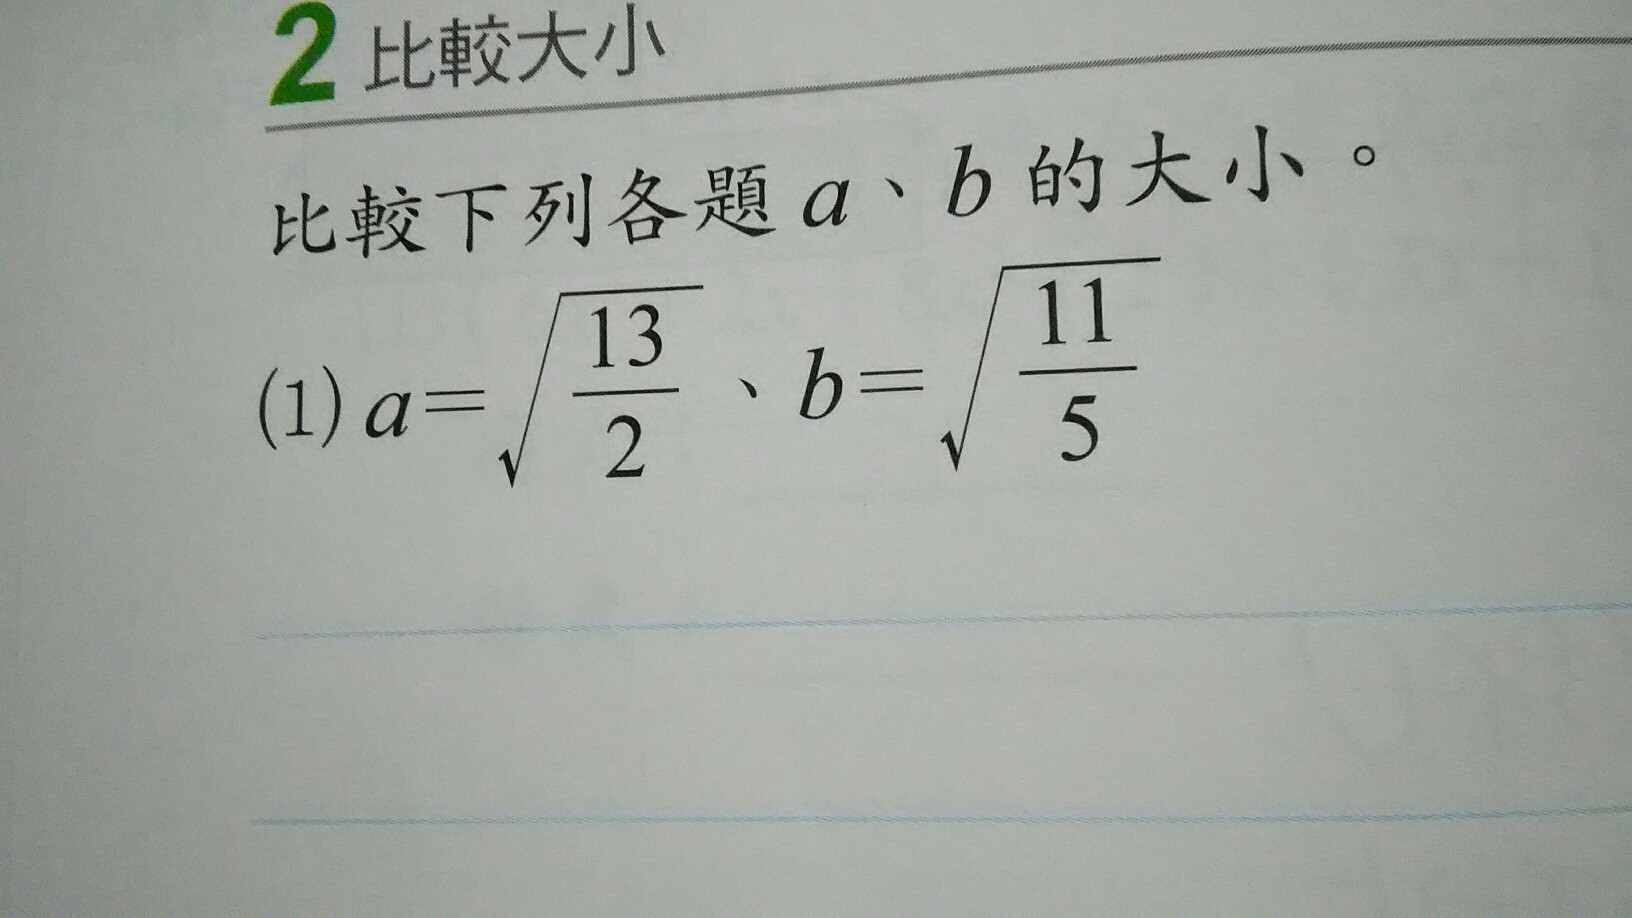 2 比較大小
比較下列各題 a、b 的大小。
(1) a=√(13/2)、b=√(11/5)